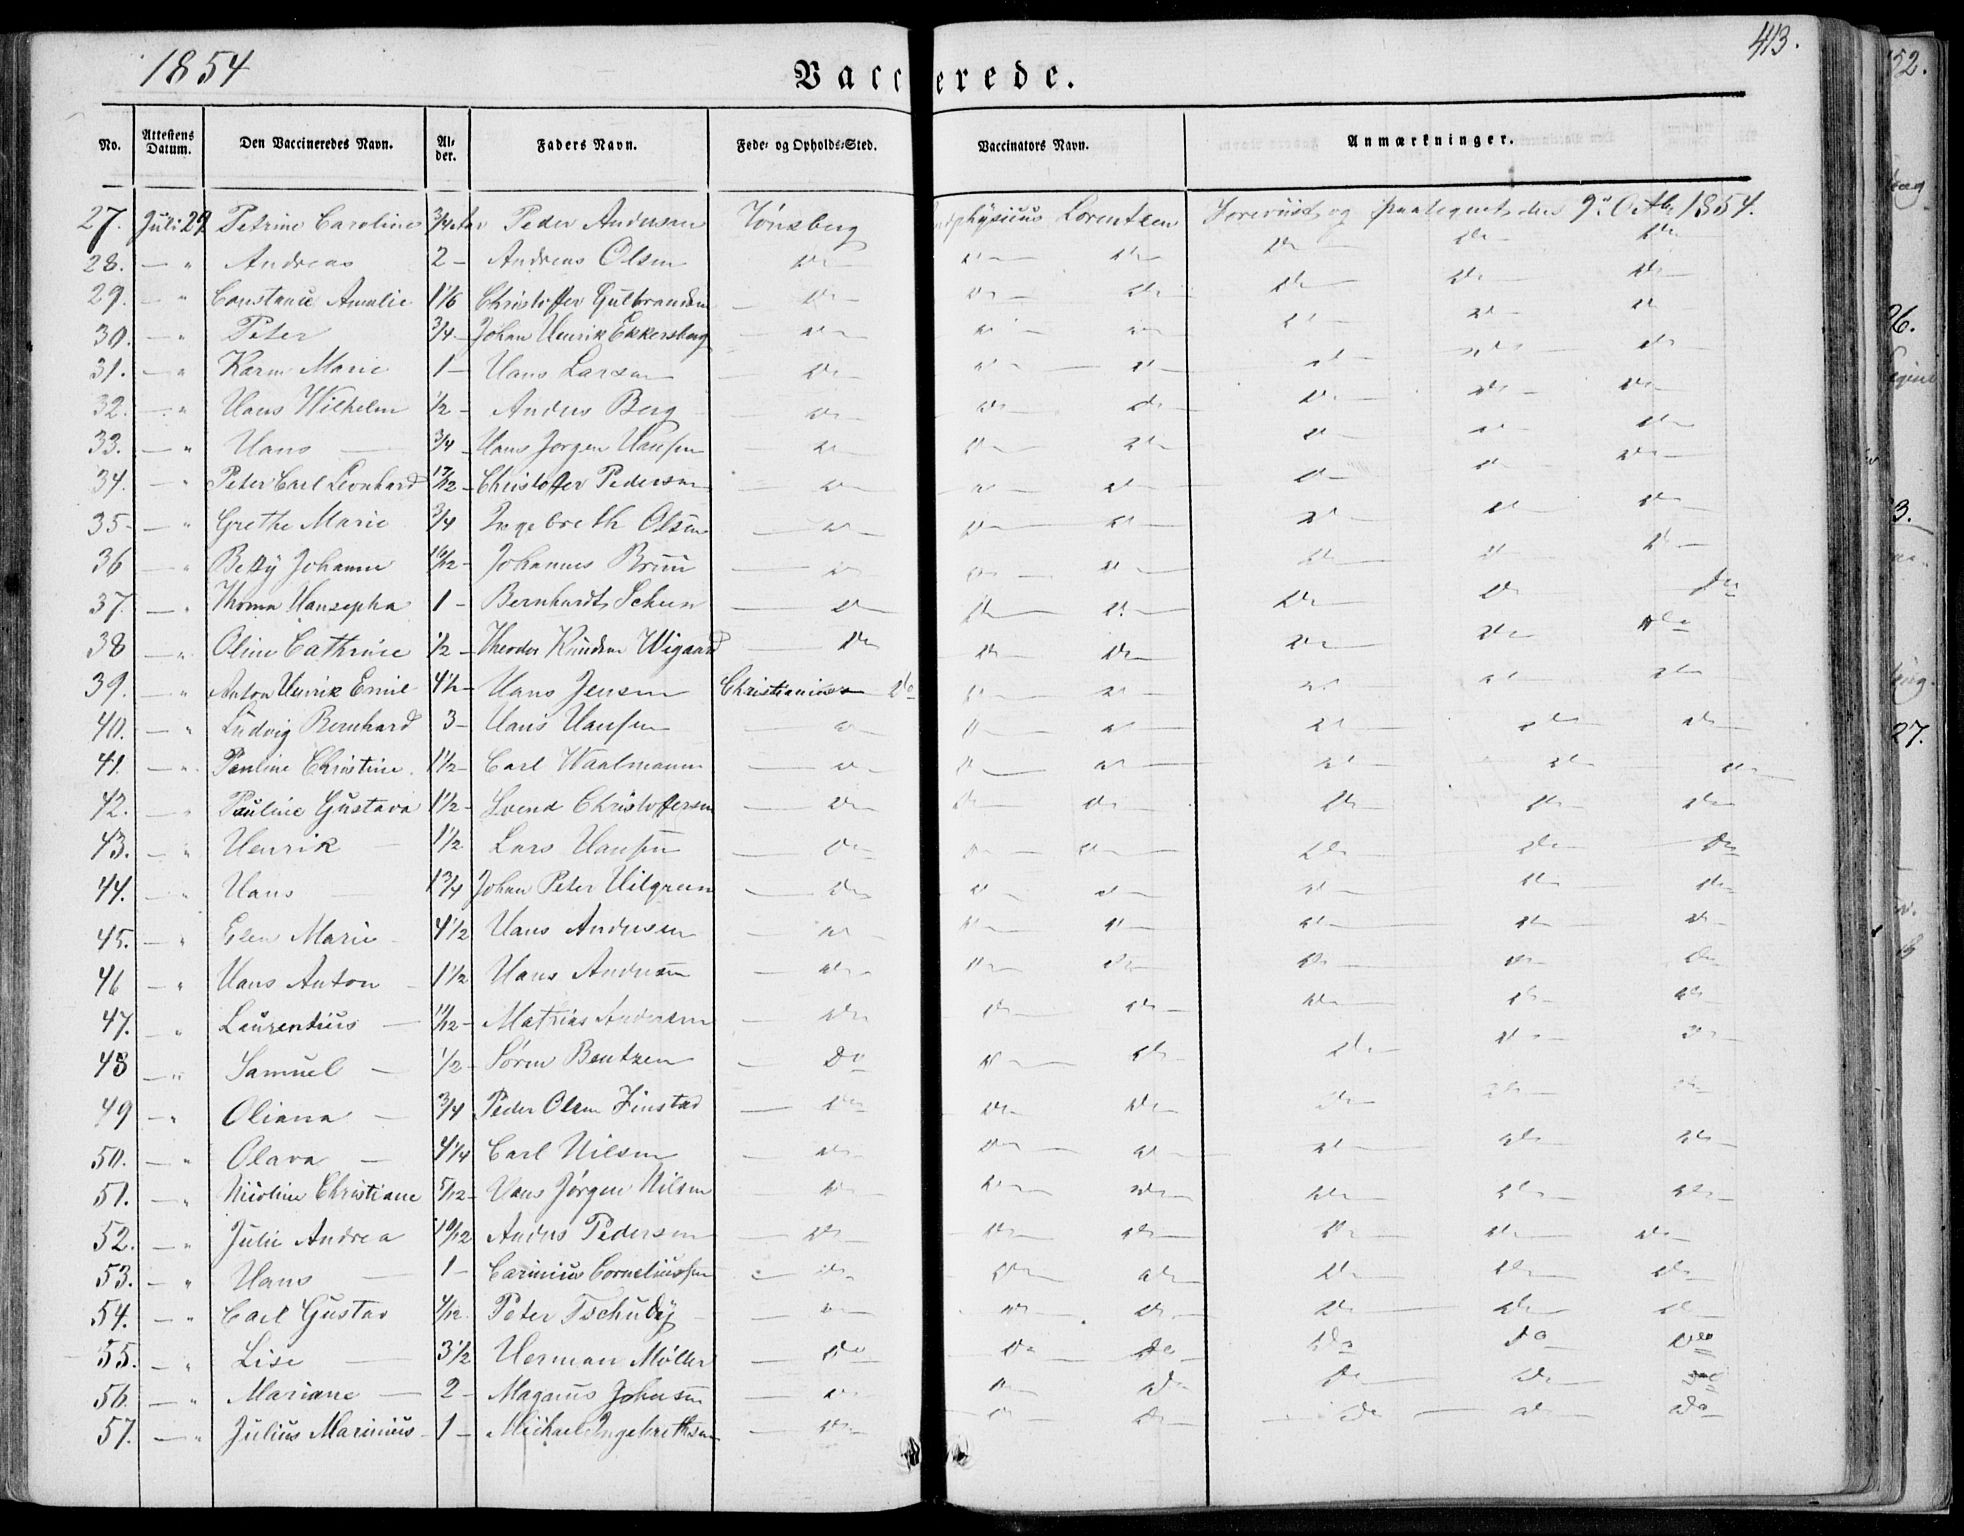 1854
Vaccinerede.
413.
No. Attestens Datum. Den Vaccineredes Navn. Al- der. Faders Navn. Føde- og Opholds-Sted. Vaccinators Navn. Anmærkninger.
27. Juli 29 Petrine Caroline 3/4 Aar Peder Andersen Tønsberg Lorentzen Foreviist og paategnet den 9de Octb. 1854.
28. — " Andreas 2 — Andreas Olsen — Do — Do — Do — Do — Do — Do
29. — " Constance Amalie 1 1/6 Christoffer Gulbrandsen — Do — Do — Do — Do — Do — Do
30. — " Peter 3/4 — Johan Henrik Ekkersberg — Do — Do — Do — Do — Do — Do
31. — " Karen Marie 1 — Hans Larsen — Do — Do — Do — Do — Do — Do
32. — " Hans Wilhelm 1/2 — Anders Berg — Do — Do — Do — Do — Do — Do
33. — " Hans — 3/4 — Hans Jørgen Hansen — Do — Do — Do — Do — Do — Do
34. — " Peter Carl Leonhard Christoffer Pedersen — Do — Do — Do — Do — Do — Do
35 — " Grethe Marie 3/4 Ingebreth Olsen — Do — Do — Do — Do — Do — Do
36 — " Betzy Johanne 10/12 — Johannes Bruun — Do — Do — Do — Do — Do — Do
37. — " Thoma Hansepha 1 — Bernhardt Scheen — Do — Do — Do — Do — Do — Do
38 — " Oline Cathrine 1/2 — Theodor Knudsen Wigaard — Do — Do — Do — Do — Do — Do
39. — " Anton Henrik Emil 4 1/2 — Hans Jensen Do — Do — Do — Do — Do — Do
40. — " Ludvig Bernhard 3 — Hans Hansen — Do — Do — Do — Do — Do — Do
41. — " Pauline Christine 1 1/2 — Carl Waalmann — Do — Do — Do — Do — Do — Do
42. — " Pauline Gustava 1 1/2 — Svend Christoffersen — Do — Do — Do — Do — Do — Do
43. — " Henrik — 1 1/2 Lars Hansen — Do — Do — Do — Do — Do — Do
44. — " Hans — 1 3/4 Johan Peter Hilgreen — Do — Do — Do — Do — Do — Do
45. — " Elen Marie 4 1/2 Hans Andersen — Do — Do — Do — Do — Do — Do
46 — " Hans Anton — 1 1/2 Hans Andersen — Do — Do — Do — Do — Do — Do
47. " Laurentius — 11/12 — Mathias Andersen — Do — Do — Do — Do — Do — Do
48 — " Samuel — 1/2 — Søren Bentzen — Do — Do — Do — Do — Do — Do
49 — " Oliana — 3/4 Peder Olsen Finstad — Do — Do — Do — Do — Do — Do
50. — " Olava — 4 1/4 Carl Nilsen — Do — Do — Do — Do — Do — Do
51. — " Nicoline Christiane 5/12 — Hans Jørgen Nilsen — Do — Do — Do — Do — Do — Do
52. — " Julie Andrea 10/12 Anders Pedersen — Do — Do — Do — Do — Do — Do
53. — " Hans — 1 — Carinius Corneliussen — Do — Do — Do — Do — Do — Do
54. — " Carl Gustav 4/12 Peter Tschudy — Do — Do — Do — Do — Do — Do
55. — " Lise — 3 1/2 Herman Møller — Do — Do — Do — Do — Do — Do
56. — " Mariane — 2 — Magnus Johnsen — Do — Do — Do — Do — Do — Do
57. — " Julius Marinius — 1 — Michael Ingebrethsen — Do — Do — Do — Do — Do — Do